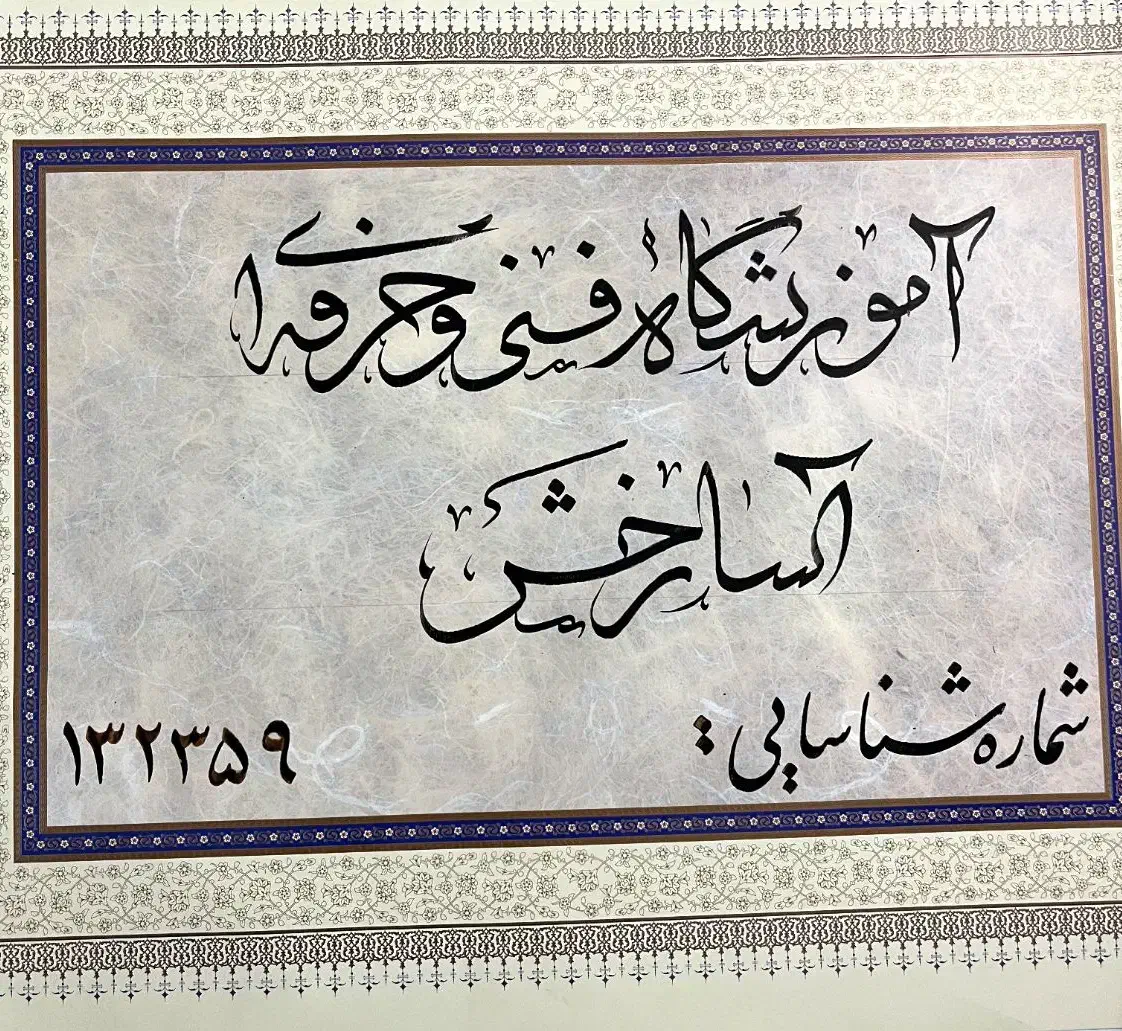 آموزشگاه فنی و حرفه ای
آسارخش
شماره شناسایی : ۱۳۲۳۵۹